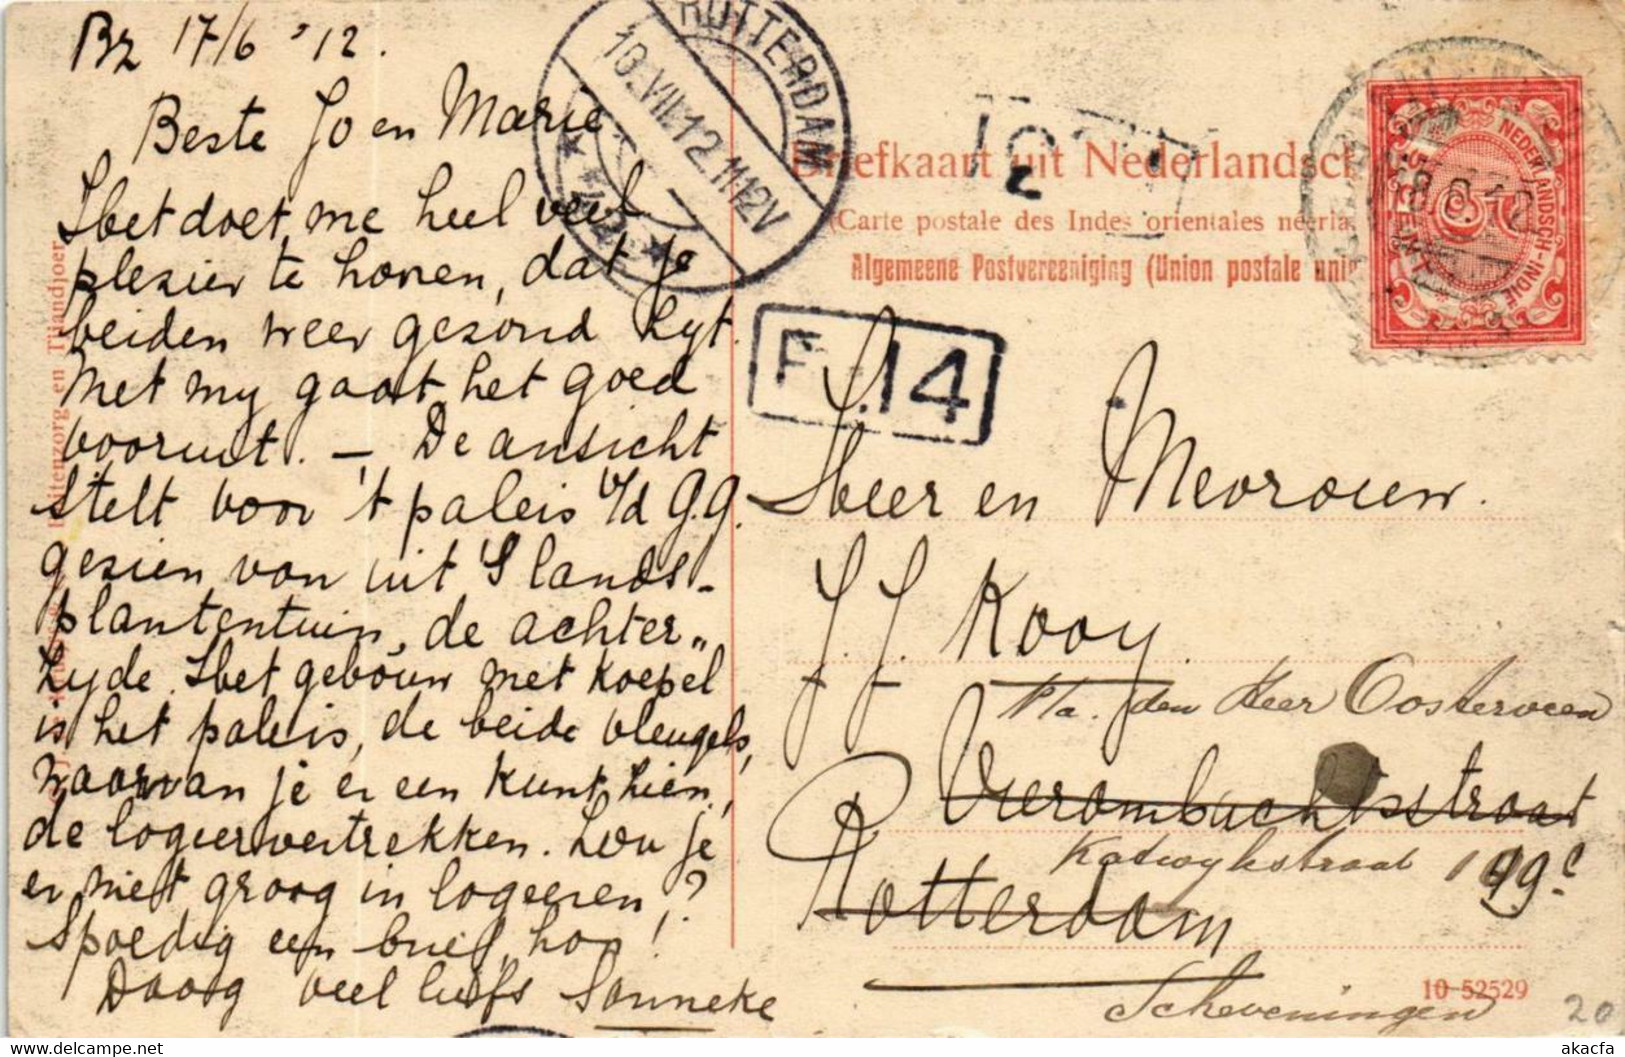 Bz 17/6 '12.
Beste Jo en Marie
Het doet me heel veel
plezier te horen, dat je
beiden weer gezond zyt.
Met my gaat het goed
vooruit. — De ansicht
stelt voor 't paleis v/d G.G.
gezien van uit 's lands-
plantentuin, de achter-
zyde. Het gebouw met koepel
is het paleis, de beide vleugels,
waarvan je er een kunt zien,
de logeervertrekken. Zou je
er niet graag in logeeren?
Spoedig een brief, hoor!
Daag veel liefs Sonneke
ROTTERDAM
10.VII.12.11-12V
Briefkaart uit Nederlandsch
(Carte postale des Indes orientales néerla
Algemeene Postvereeniging (Union postale uni
NEDERLANDSCH-INDIE
5 CENT
F. 14
Heer en Mevrouw.
J. J. Kooy
p/a. den Heer Oosterveen
Vierambachtsstraat
Katwykstraat 199c
Rotterdam
Scheveningen
10-52529
20
Buitenzorg en Tjiandjoer
akacfa